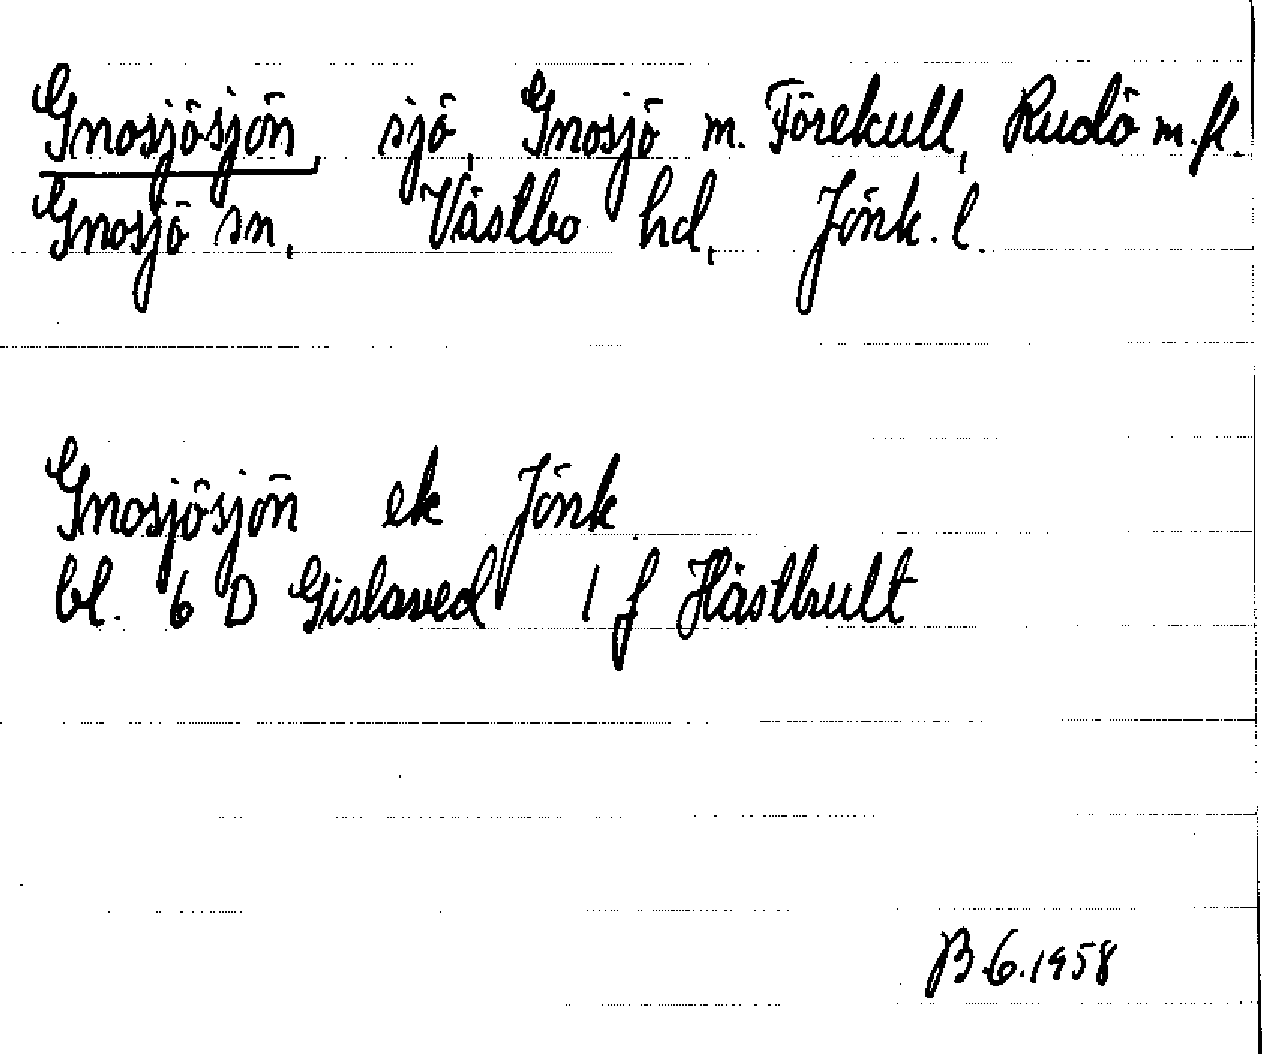 Gnosjösjön, sjö, Gnosjö m. Törekull, Rudö m.fl.
Gnosjö sn, Västbo hd, Jönk. l.
Gnosjösjön ek Jönk.
bl. 6 D Gislaved 1 f Hästhult
B G. 1958